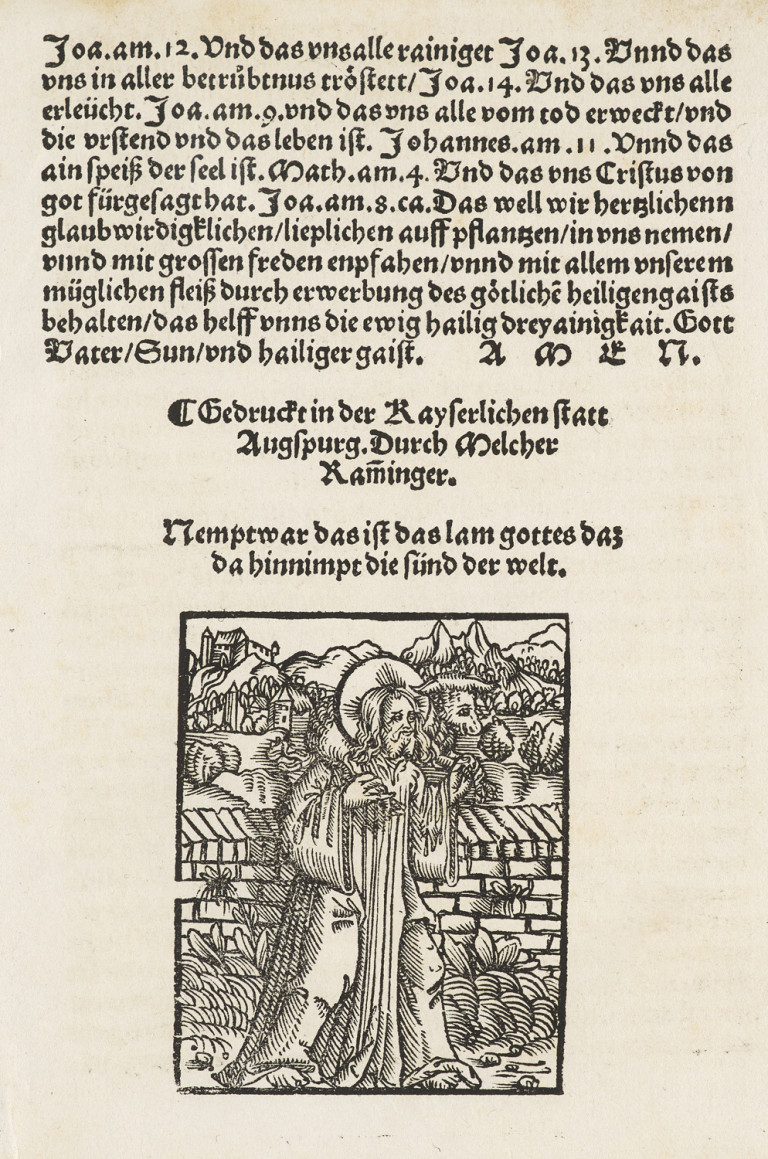 Joa.am.12.Vnd das vns alle rainiget Joa.13.Vnnd das
vns in aller betrůbtnus trőstett/Joa.14.Vnd das vns alle
erleücht.Joa.am.9.vnd das vns alle vom tod erweckt/vnd
die vrstend vnd das leben ist. Johannes.am.11.Vnnd das
ain speiß der seel ist.Math.am.4.Vnd das vns Cristus von
got fürgesagt hat.Joa.am.8.ca.Das well wir hertzlichenn
glaubwirdigklichen/lieplichen auff pflantzen/in vns nemen/
vnnd mit grossen freden enpfahen/vnnd mit allem vnserem
müglichen fleiß durch erwerbung des götlichē heiligen gaists
behalten/das helff vnns die ewig hailig dreyainigkait.Gott
Vater/Sun/vnd hailiger gaist. A M E N.
¶ Gedruckt in der Kayserlichen statt
Augspurg.Durch Melcher
Ram̄inger.
Nempt war das ist das lam gottes daz
da hinnimpt die sünd der welt.